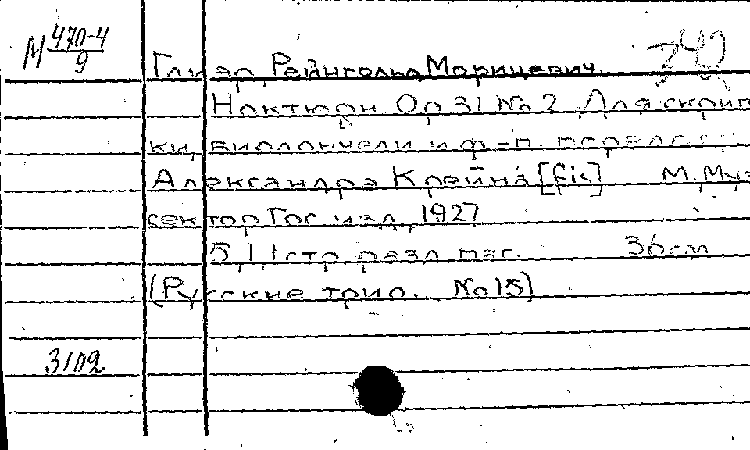 М 470-4
9
242
Глиэр, Рейнгольд Морицевич.
Ноктюрн Op 31 No 2 Для скрип
ки, виолончели и ф-п. перелож
Александра Крейна [sic] М. Муз
сектор Гос. изд., 1927
5,1,1 стр. разл. паг. 36 см
(Русские трио. No 15)
3102